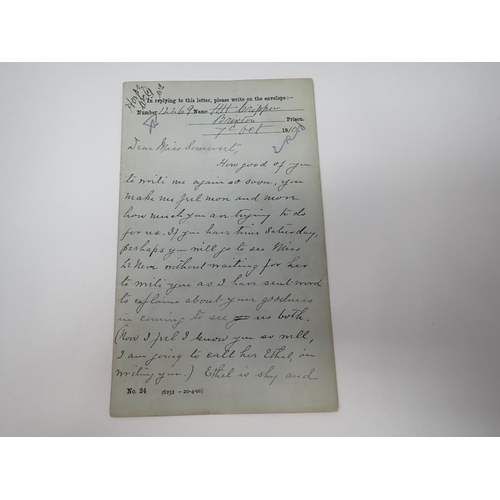 In replying to this letter, please write on the envelope:—
Number 12269 Name HH Crippen
Brixton Prison.
7th Oct 1910
Dear Miss Somerset,
How good of you
to write me again so soon, you
make me feel more and more
how much you are trying to do
for us. If you have time Saturday,
perhaps you will go to see Miss
Le Neve without waiting for her
to write you as I have sent word
to explain about your goodness
in coming to see us both.
(Now I feel I know you so well,
I am going to call her Ethel, in
writing you.) Ethel is shy and
No. 24 (6252—20-4-06)